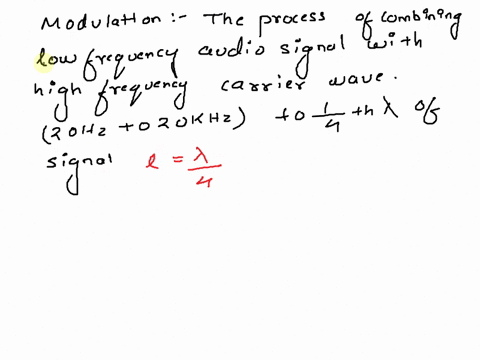 Modulation :- The process of combining
low frequency audio signal with
high frequency carrier wave.
(20Hz to 20KHz) to 1/4 th λ of
signal l = λ/4